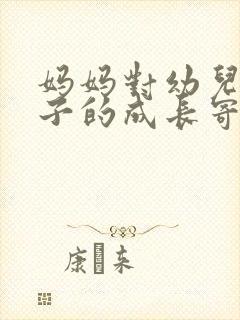 妈妈對幼兒
子的成長寄
康 来